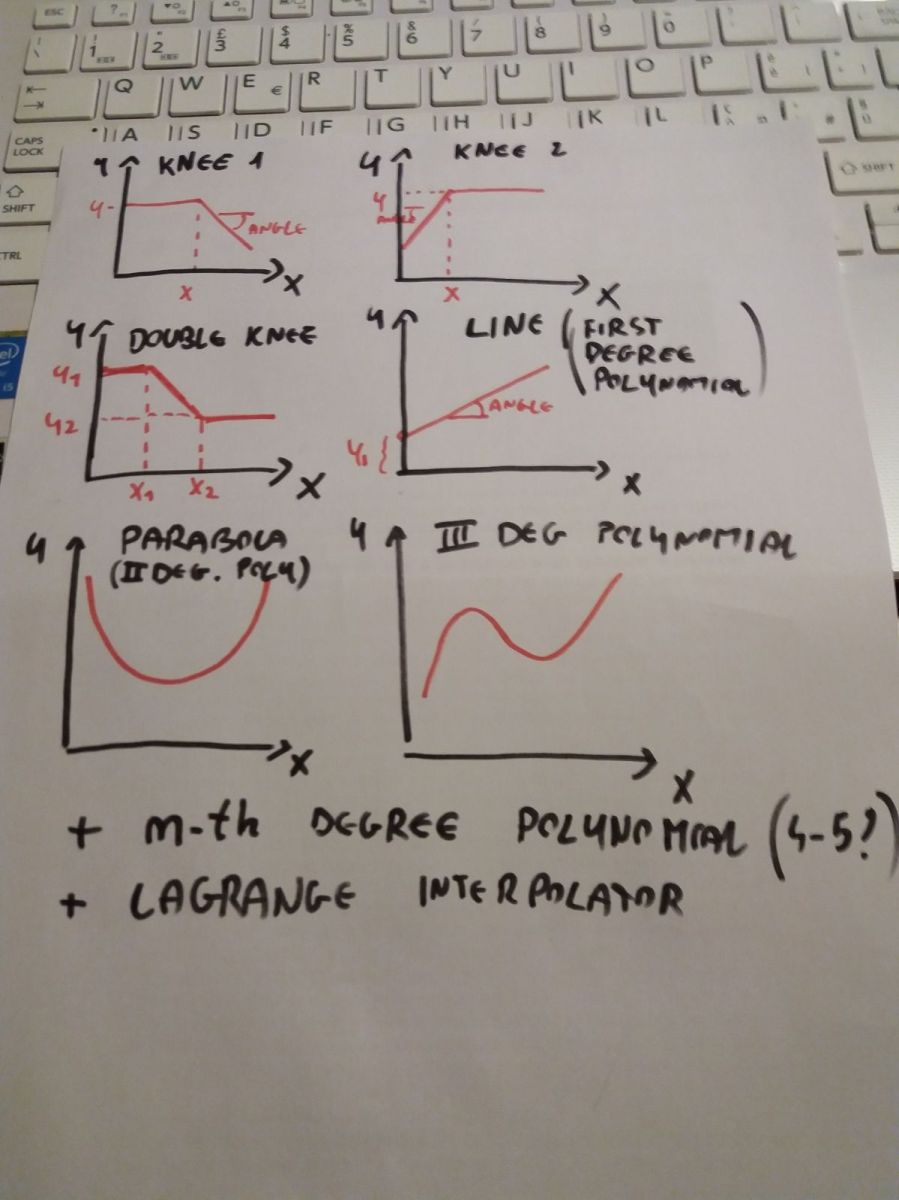 ESC
! 1 " 2 £ 3 $ 4 % 5 & 6 / 7 ( 8 ) 9 = 0
Q W E € R T Y U I O P
CAPS LOCK A S D F G H J K L
SHIFT SHIFT
TRL
i5
y KNEE 1
y
ANGLE
x
X
y KNEE 2
y
x
X
y DOUBLE KNEE
y1
y2
x1 x2
X
y LINE (FIRST
DEGREE
POLYNOMIAL)
ANGLE
y1 {
X
y PARABOLA
(II DEG. POLY)
X
y III DEG POLYNOMIAL
X
+ m-th DEGREE POLYNOMIAL (4-5?)
+ LAGRANGE INTERPOLATOR